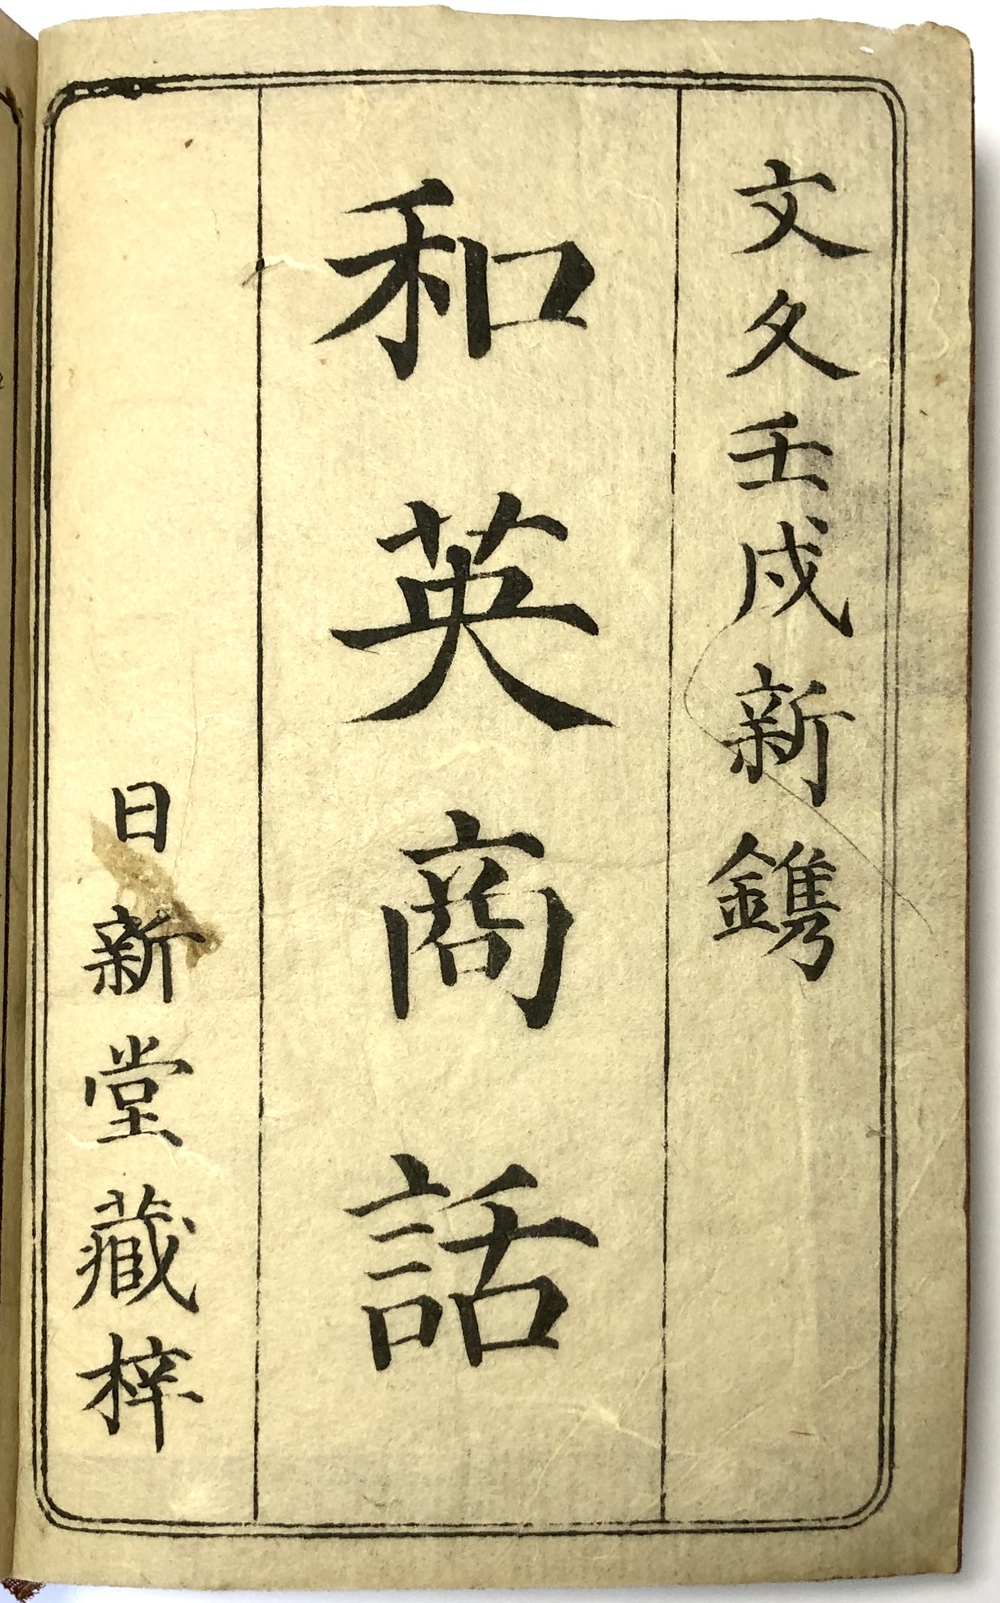 文久壬戌新鐫
和英商話
日新堂藏梓